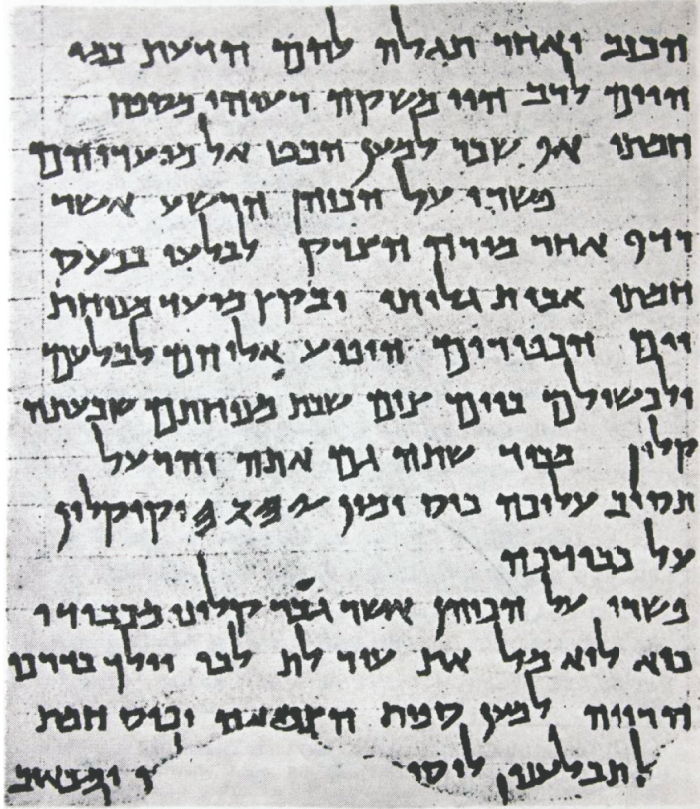 הכזב ואחר תגלה להם הדעת כמי
היים לרב הוי משקה רעיהו מספח
חמתו אף שכר למען הבט אל מועדיהם
פשרו על הכוהן הרשע אשר
רדף אחר מורה הצדק לבלעו בכעס
חמתו אבית גלותו ובקץ מועד מנוחת
יום הכפורים הופיע אליהם לבלעם
ולכשילם ביום צום שבת מנוחתם שבעתה
קלון מכבוד שתה גם אתה והרעל
תסוב עליכה כוס ימין 𐤉𐤄𐤅𐤄 וקיקלון
על כבודכה
פשרו על הכוהן אשר גבר קלונו מכבודו
כיא לוא מל את עור לת לבו וילך בדרכי
הרויה למען ספות הצמאה וכוס חמת
תבלענו לוסי ו ומכאוב